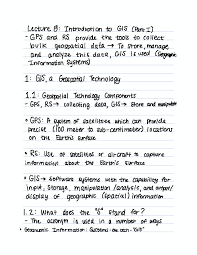 Lecture 8: Introduction to GIS (Part I)
- GPS and RS provide the tools to collect
bulk geospatial data → To store, manage
and analyze this data, GIS is used (Geographic
Information Systems)
1: GIS, a Geospatial Technology
1.1: Geospatial Technology Components
- GPS, RS → collecting data, GIS → Store and manipulate
• GPS: A system of satellites which can provide
precise (100 meter to sub-centimeter) locations
on the Earth's surface
• RS: Use of satellites or aircraft to capture
information about the Earth's surface
• GIS → Software systems with the capability for
input, storage, manipulation/analysis, and output/
display of geographic (spatial) information
1.2: What does the "S" stand for?
- The acronym is used in a number of ways
• Geographic Information: Systems